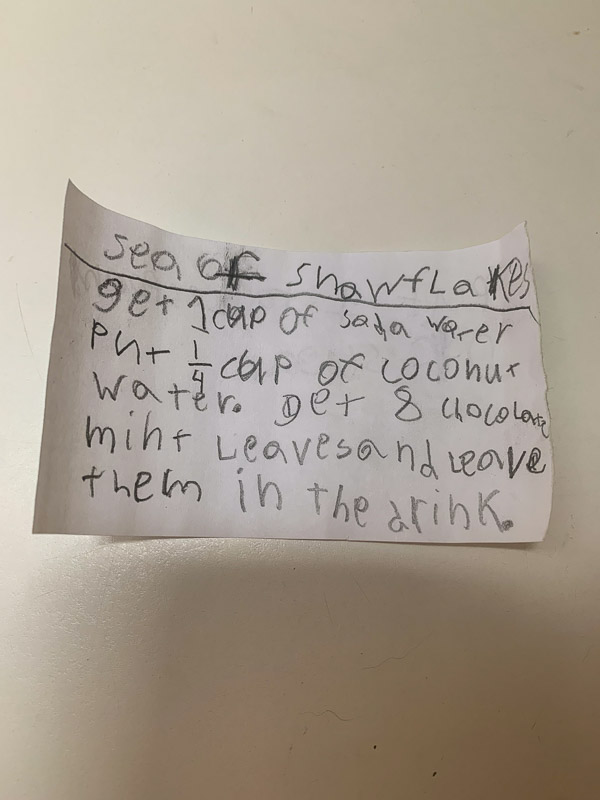 sea of snowflakes
get 1 cup of soda water
Put 1/4 cup of coconut
water. Get 8 chocolate
mint Leaves and Leave
them in the drink.